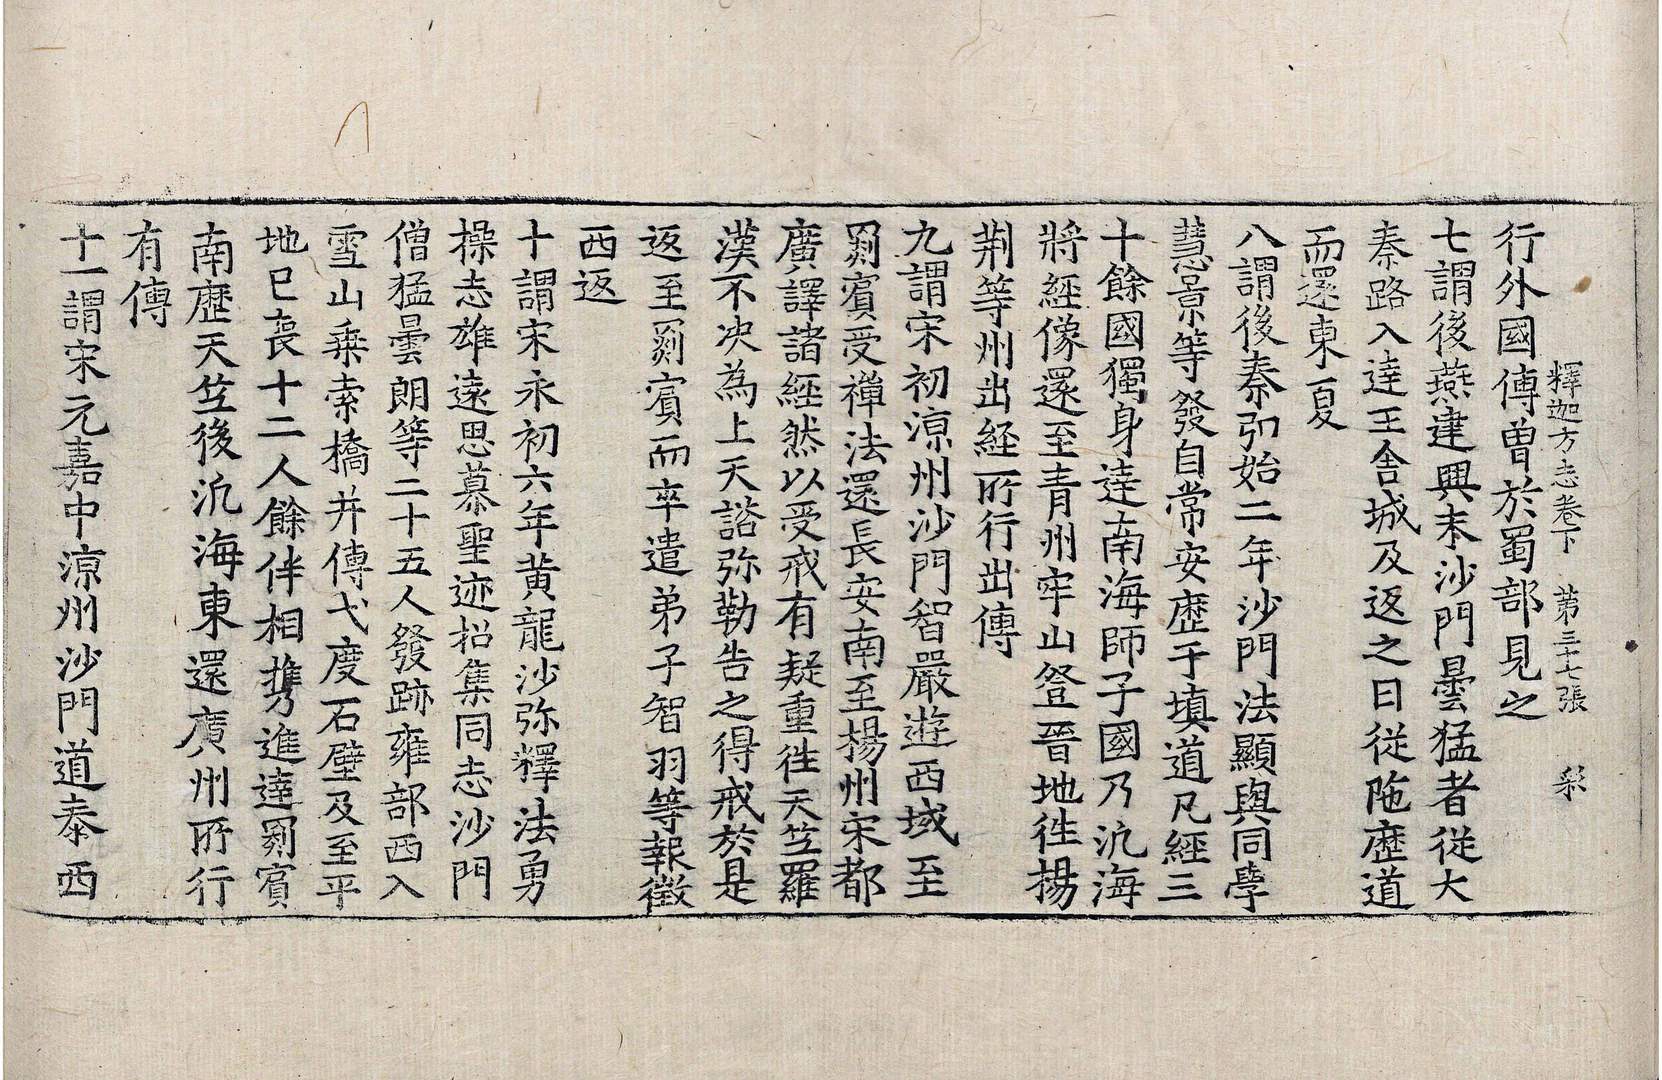 釋迦方志卷下 第三十七張 彩
行外國傳曽於蜀部見之
七謂後燕建興末沙門曇猛者從大
秦路入達王舍城及返之日從陁歷道
而還東夏
八謂後秦弘始二年沙門法顯與同學
慧景等發自常安歷于填道凡經三
十餘國獨身達南海師子國乃汎海
將經像還至青州牢山登晉地往揚
荆等州出経所行出傳
九謂宋初涼州沙門智嚴遊西域至
罽賔受禪法還長安南至揚州宋都
廣譯諸經然以受戒有疑重往天竺羅
漢不决為上天諮弥勒告之得戒於是
返至罽賔而卒遣弟子智羽等報徵
西返
十謂宋永初六年黄龍沙弥釋法勇
操志雄遠思慕聖迹招集同志沙門
僧猛曇朗等二十五人發跡雍部西入
雪山乗索橋并傳弋度石壁及至平
地已喪十二人餘伴相携進達罽賔
南歷天竺後汎海東還廣州所行
有傳
十一謂宋元嘉中涼州沙門道泰西